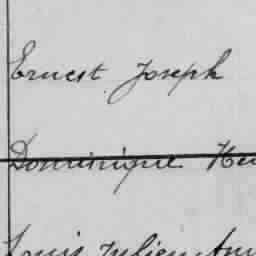 Ernest Joseph
Dominique
Louis Julien